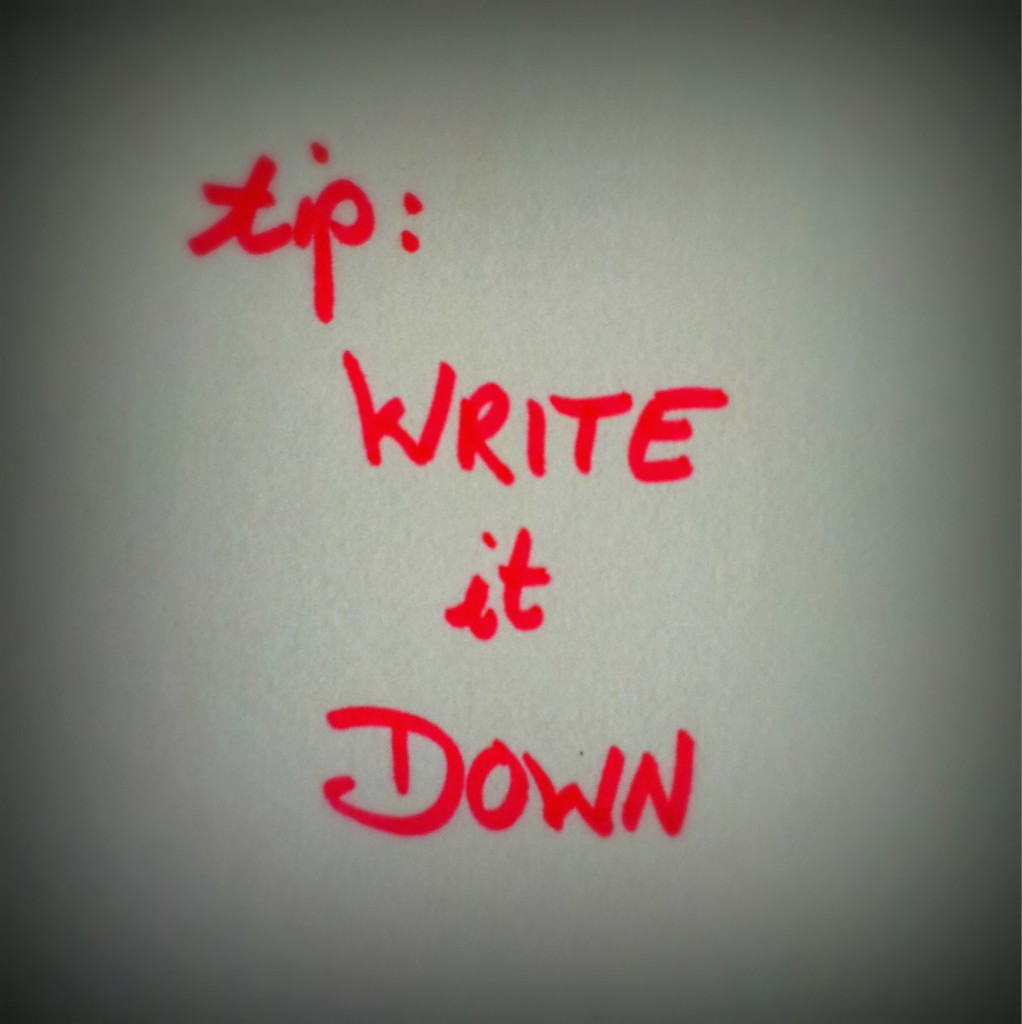 tip:
WRITE
it
DOWN